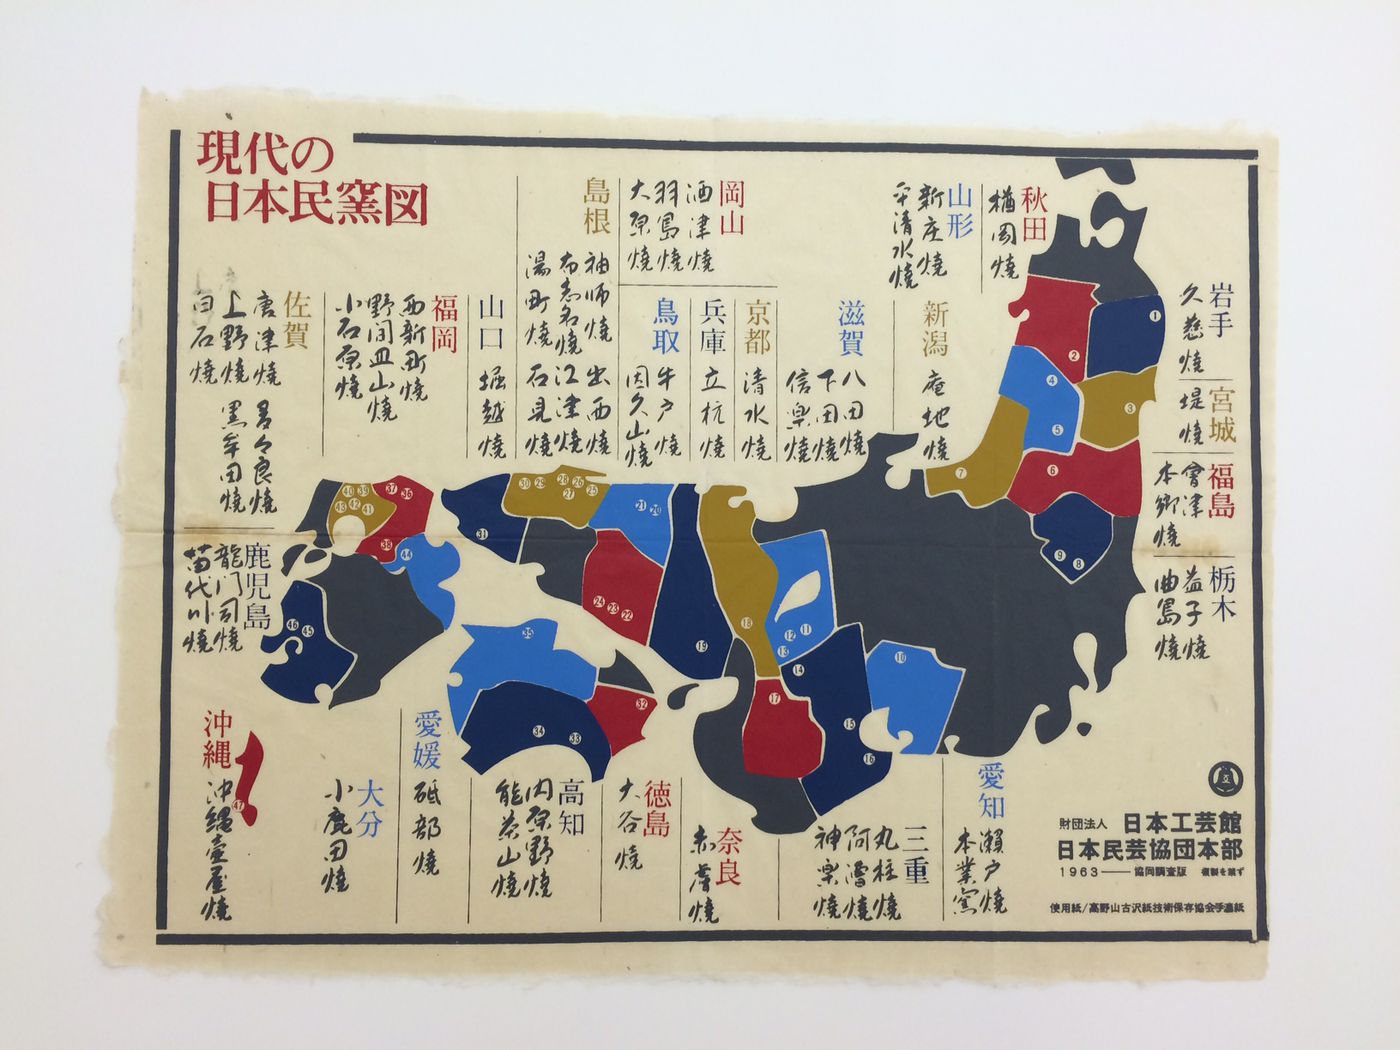 現代の
日本民窯図
秋田
楢岡焼
山形
新庄焼
平清水焼
岩手
久慈焼
宮城
堤焼
福島
會津
本郷焼
栃木
益子焼
曲島焼
新潟
庵地焼
滋賀
八田焼
下田焼
信楽焼
京都
清水焼
兵庫
立杭焼
岡山
酒津焼
羽島焼
大原焼
鳥取
牛戸焼
因久山焼
島根
袖師焼
布志名焼
湯町焼
出西焼
江津焼
石見焼
山口
堀越焼
福岡
西新町焼
野间皿山焼
小石原焼
佐賀
唐津焼
上野焼
白石焼
多々良焼
黒牟田焼
鹿児島
龍门司焼
苗代川焼
沖縄
沖縄壷屋焼
大分
小鹿田焼
愛媛
砥部焼
高知
内原野焼
能茶山焼
徳島
大谷焼
奈良
赤膚焼
三重
丸柱焼
阿漕焼
神楽焼
愛知
瀬戸焼
本業窯
1
2
3
4
5
6
7
8
9
10
11
12
13
14
15
16
17
18
19
20
21
22
23
24
25
26
27
28
29
30
31
32
33
34
35
36
37
38
39
40
41
42
43
44
45
46
47
財団法人 日本工芸館
日本民芸協団本部
1963——協同調査版 複製を禁ず
使用紙/高野山古沢紙技術保存協会手漉紙